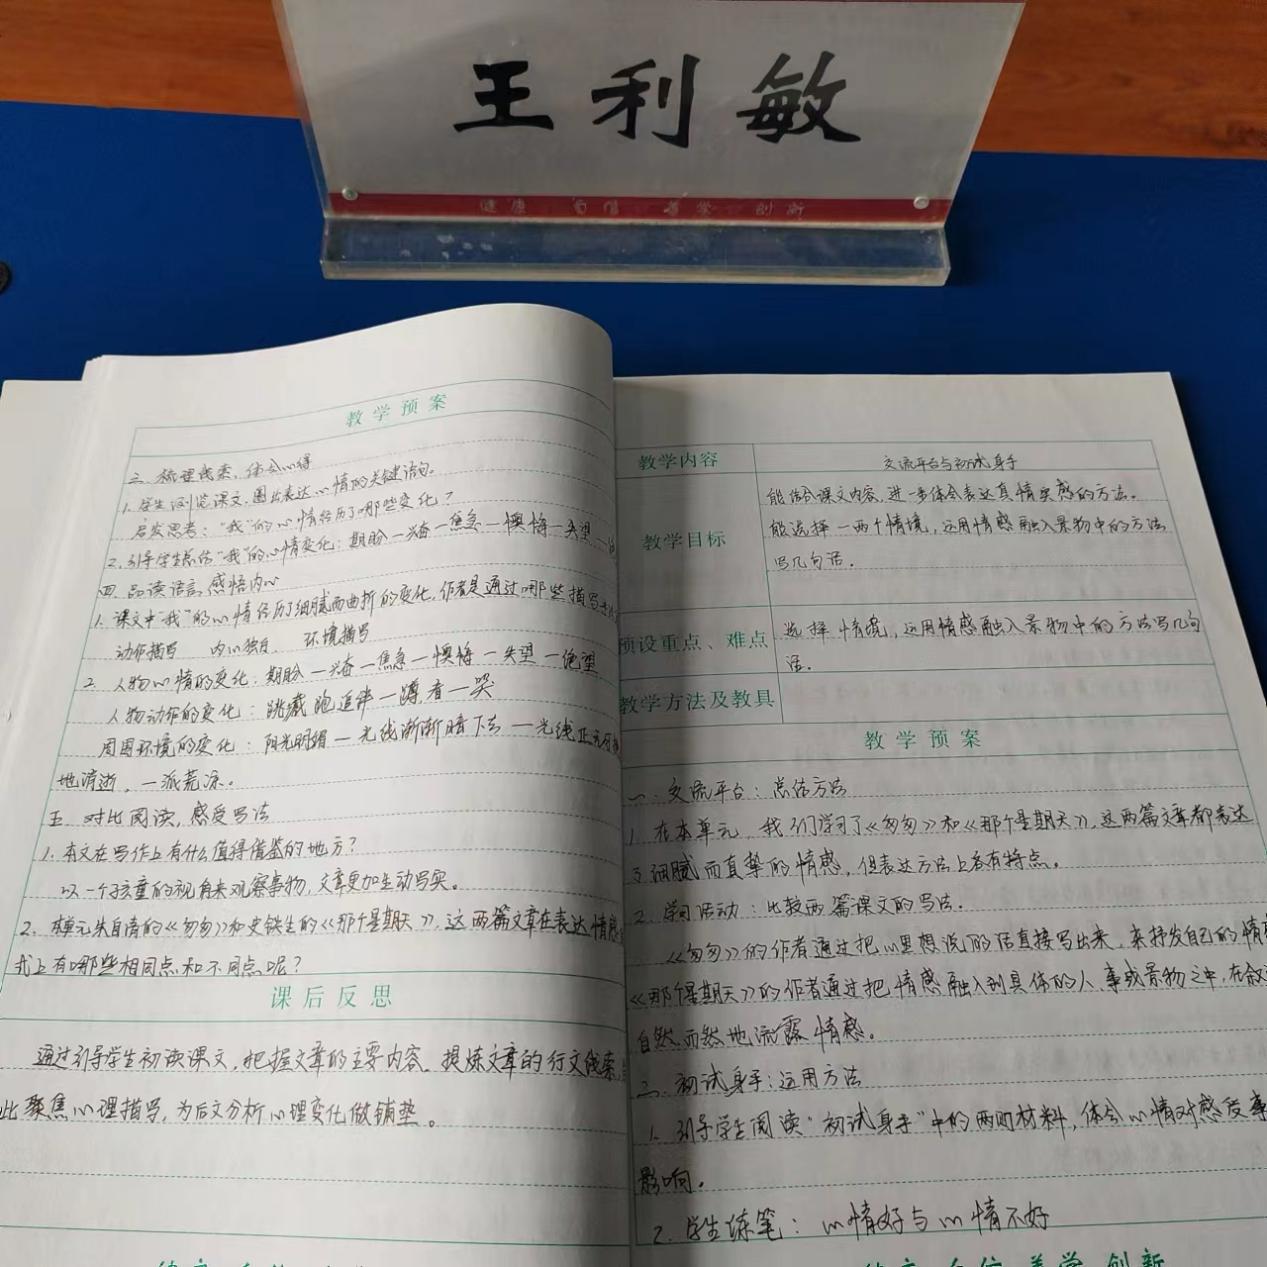 王利敏
健康 自信 善学 创新
教学预案
三、梳理线索,体会心得
1.学生浏览课文,圈出表达心情的关键语句。
启发思考:“我”的心情经历了哪些变化?
2.引导学生总结“我”的心情变化:期盼—兴奋—焦急—懊悔—失望—
四、品读语言,感悟内心
1.课文中“我”的心情经历了细腻而曲折的变化,作者是通过哪些描写
动作描写 内心独白 环境描写
2.人物心情的变化:期盼—兴奋—焦急—懊悔—失望—绝望
人物动作的变化:跳藏跑追伴—蹲,看—哭
周围环境的变化:阳光明媚—光线渐渐暗下去—光线正无
地消逝,一派荒凉。
五、对比阅读,感受写法
1.本文在写作上有什么值得借鉴的地方?
以一个孩童的视角来观察事物,文章更加生动写实。
2.本单元朱自清的《匆匆》和史铁生的《那个星期天》,这两篇文章在表达情感
式上有哪些相同点和不同点呢?
课后反思
通过引导学生初读课文,把握文章的主要内容。提炼文章的行文线索,
此聚焦心理描写,为后文分析心理变化做铺垫。
教学内容 交流平台与初试身手
教学目标 能结合课文内容,进一步体会表达真情实感的方法。
能选择一两个情境,运用情感融入景物中的方法
写几句话。
预设重点、难点 选择情境,运用情感融入景物中的方法写几句
话。
教学方法及教具
教学预案
一、交流平台:总结方法
1.在本单元,我们学习了《匆匆》和《那个星期天》,这两篇文章都表达
了细腻而真挚的情感,但表达方法上各有特点。
2.学习活动:比较两篇课文的写法。
《匆匆》的作者通过把心里想说的话直接写出来,来抒发自己的情
《那个星期天》的作者通过把情感融入到具体的人、事或景物之中,在叙
自然而然地流露情感。
二、初试身手:运用方法
1.引导学生阅读“初试身手”中的两则材料,体会心情对感受事
影响。
2.学生练笔:心情好与心情不好
善学 创新